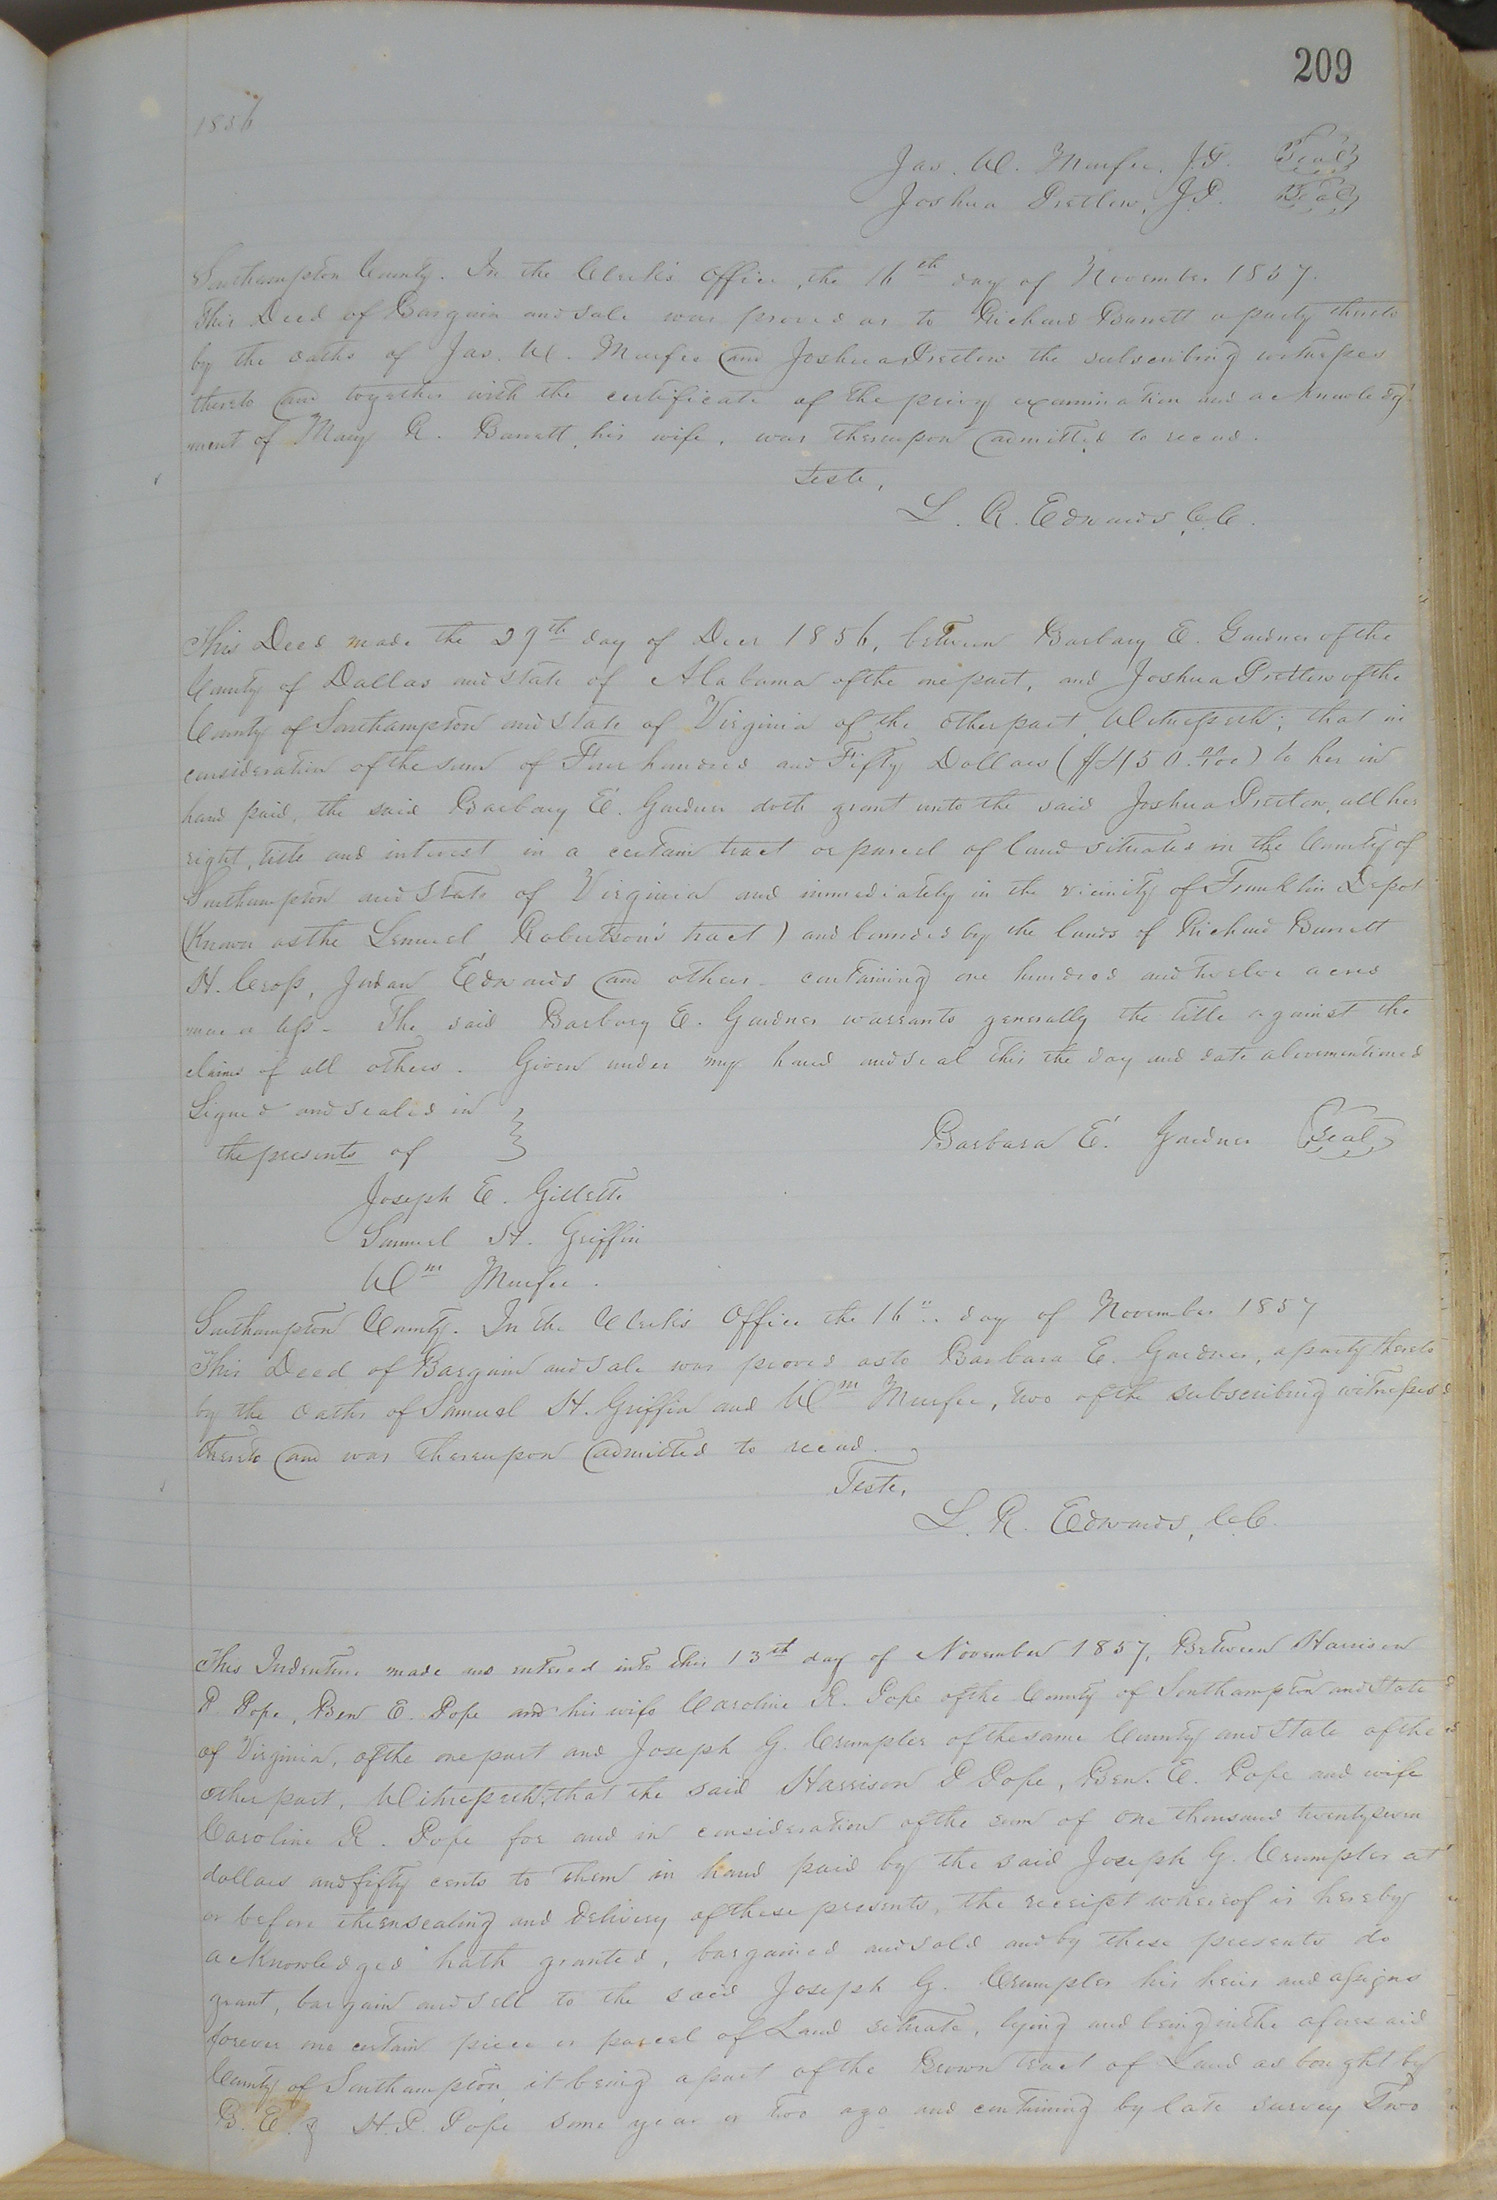 209
1856
Jas. W. Murfee, J.P. Seal
Joshua Pretlow, J.P. Seal
Southampton County. In the Clerk's Office, the 16th day of November 1857.
This Deed of Bargain and Sale was proved as to Richard Barrett a party thereto
by the oaths of Jas. W. Murfee and Joshua Pretlow the subscribing witnesses
thereto and together with the certificate of the privy examination and acknowledg-
ment of Mary R. Barrett, his wife, was thereupon admitted to record.
Teste,
L. R. Edwards C.C.
This Deed made the 29th day of Decr 1856, between Barbary E. Gardner of the
County of Dallas and State of Alabama of the one part, and Joshua Pretlow of the
County of Southampton and State of Virginia of the other part, Witnesseth; that in
consideration of the sum of Four hundred and Fifty Dollars ($450.00/100) to her in
hand paid, the said Barbary E. Gardner doth grant unto the said Joshua Pretlow, all her
right, title and interest in a certain tract or parcel of land situated in the County of
Southampton and State of Virginia and immediately in the vicinity of Franklin Depot
(Known as the Lemuel Robertson's tract) and bounded by the lands of Richard Barrett
H. Cross, Jordan Edwards and others - containing one hundred and twelve acres
more or less - The said Barbary E. Gardner warrants generally the title against the
claims of all others. Given under my hand and seal this the day and date abovementioned
Signed and sealed in
the presents of
Barbara E. Gardner Seal
Joseph E. Gillette
Samuel H. Griffin
Wm Murfee.
Southampton County. In the Clerk's Office the 16th day of November 1857
This Deed of Bargain and Sale was proved as to Barbara E. Gardner, a party thereto
by the oaths of Samuel H. Griffin and Wm Murfee, two of the subscribing witnesses
thereto and was thereupon admitted to record.
Teste,
L. R. Edwards, C.C.
This Indenture made and entered into this 13th day of November 1857, Between Harrison
P. Pope, Ben E. Pope and his wife Caroline R. Pope of the County of Southampton and State
of Virginia, of the one part and Joseph G. Crumpler of the same County and State of the
other part, Witnesseth, that the said Harrison P Pope, Ben. E. Pope and wife
Caroline R. Pope for and in consideration of the sum of one thousand twentyseven
dollars and fifty cents to them in hand paid by the said Joseph G. Crumpler at
or before the ensealing and delivery of these presents, the receipt whereof is hereby
acknowledged hath granted, bargained and sold and by these presents do
grant, bargain and sell to the said Joseph G. Crumpler his heirs and assigns
forever one certain piece or parcel of Land situate, lying and being in the aforesaid
County of Southampton it being a part of the Brown tract of Land as bought by
B. E. & H. P. Pope some year or two ago and containing by late survey Two